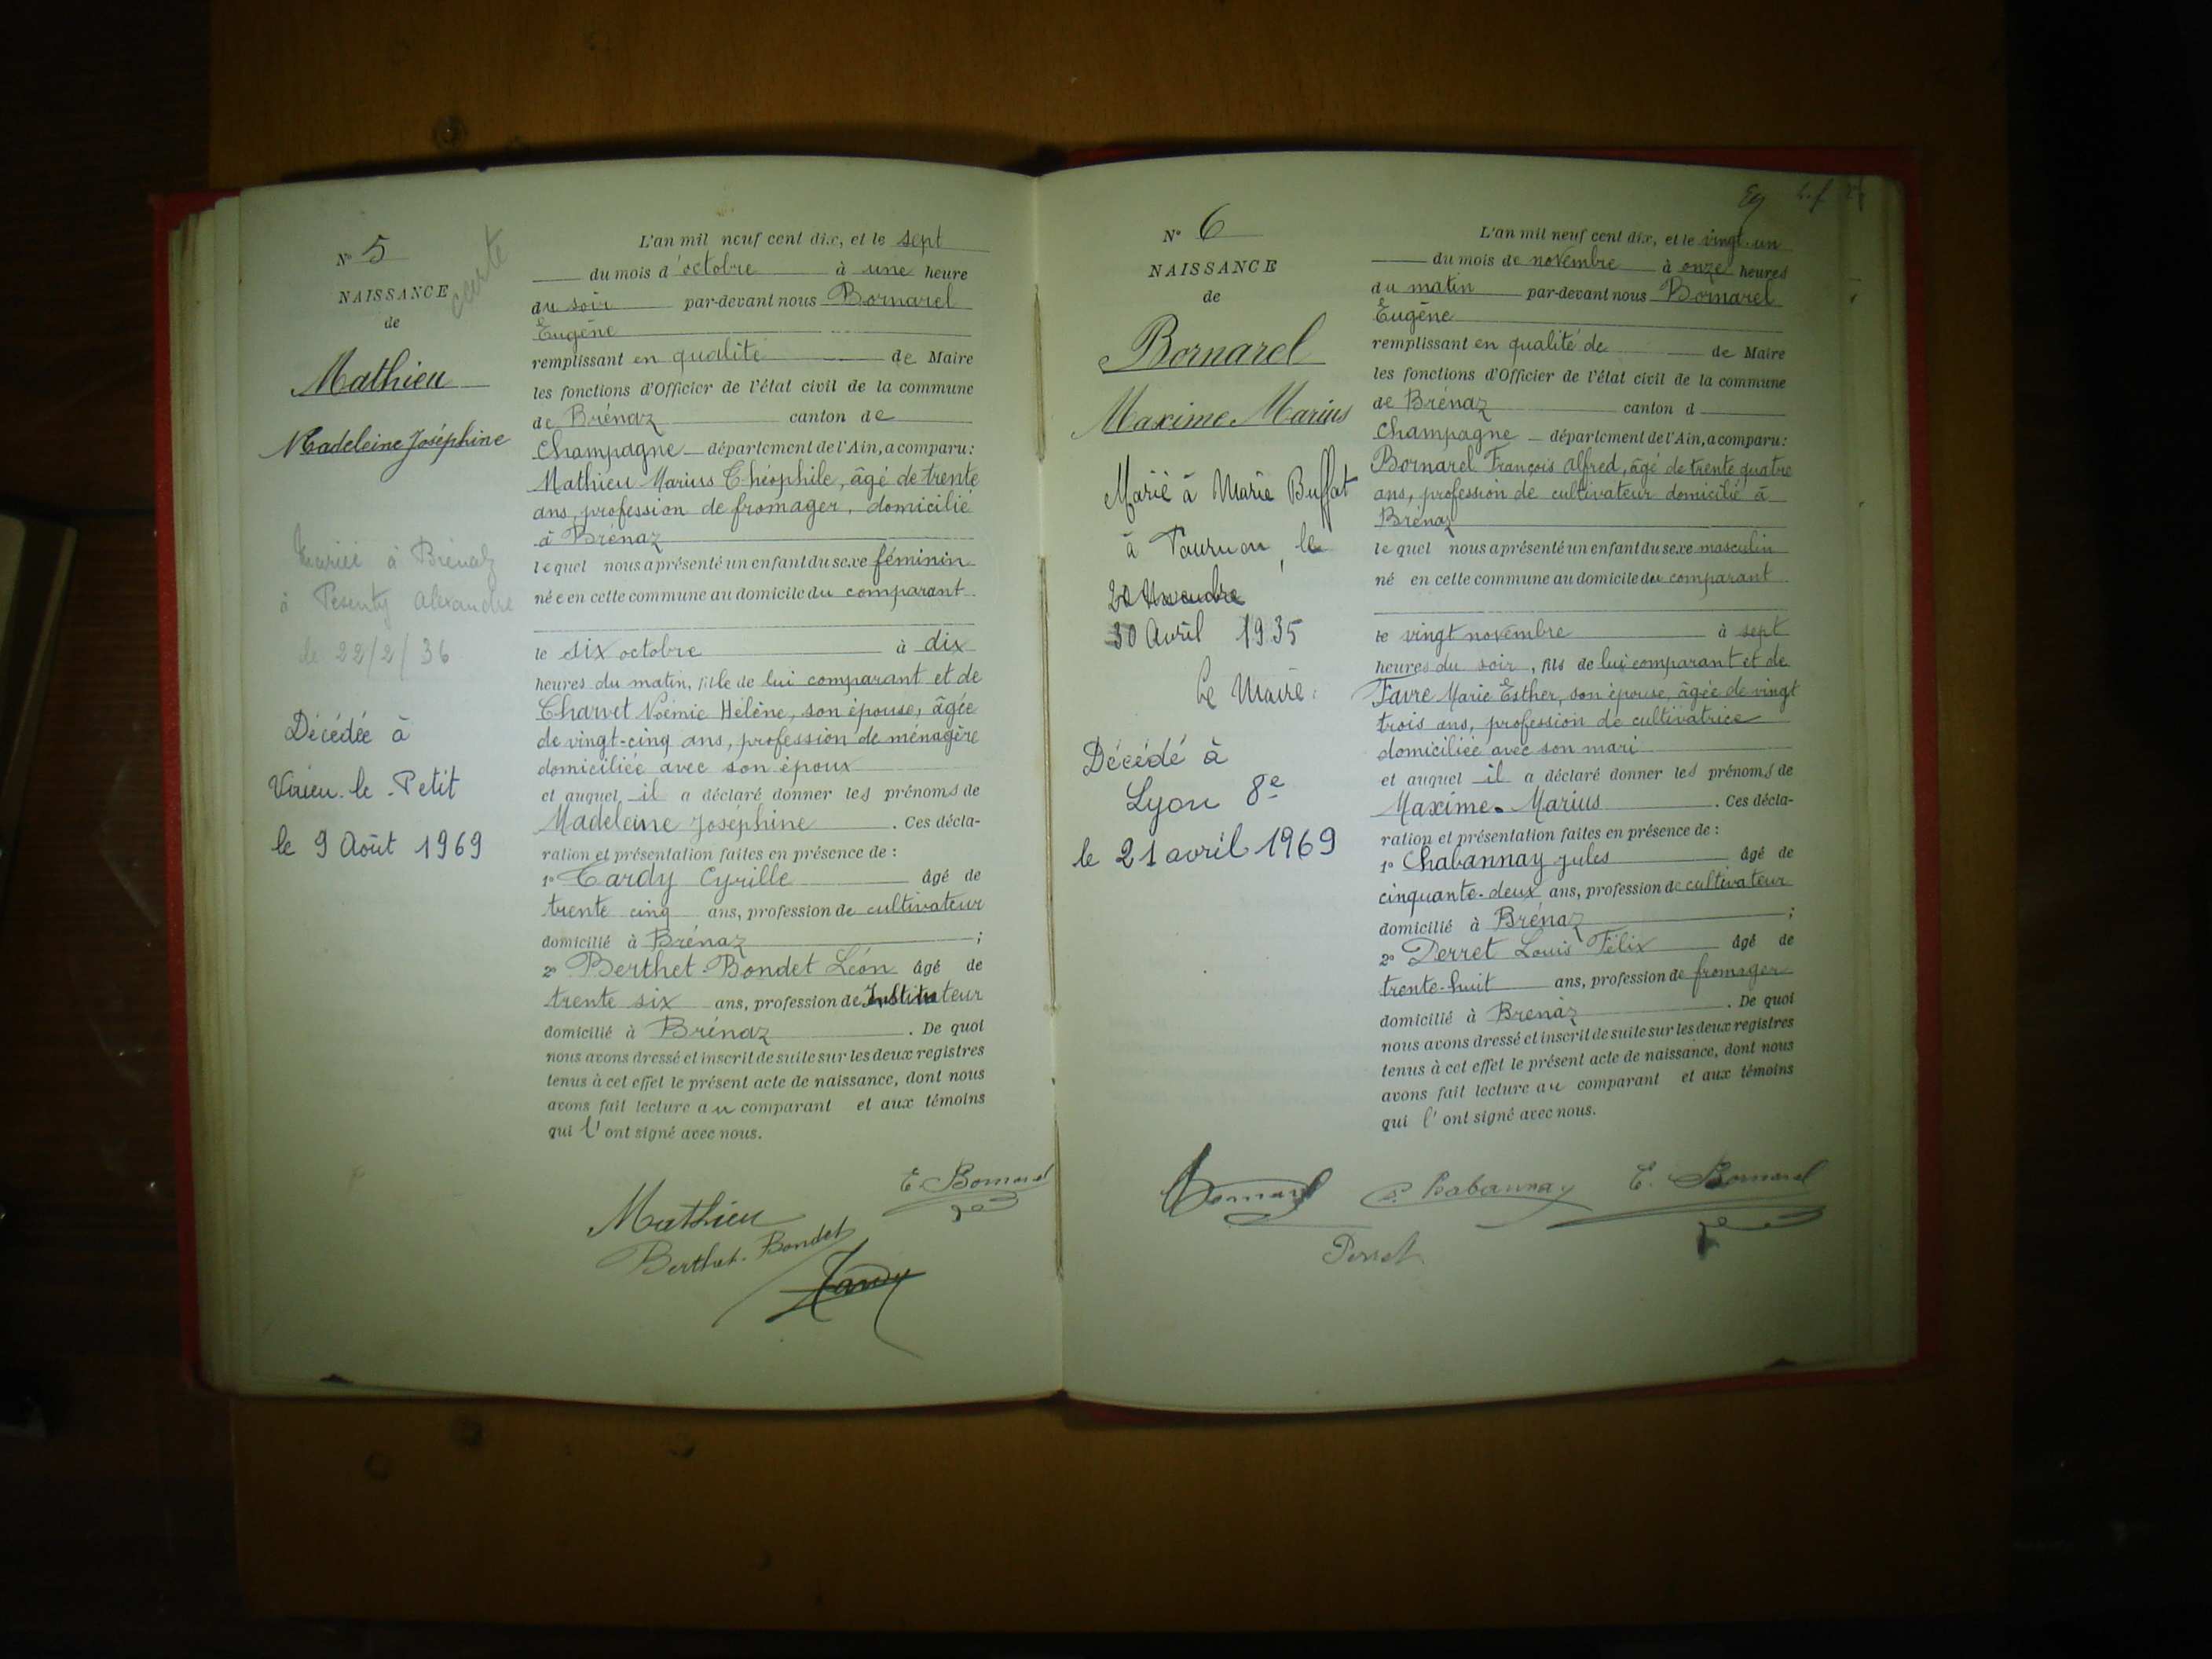 N° 5
NAISSANCE
de
Mathieu
Madeleine Joséphine
carte
Mariée à Brénaz
à Pesenty Alexandre
le 22/2/36
Décédée à
Virieu-le-Petit
le 9 Août 1969
L'an mil neuf cent dix, et le sept
du mois d'octobre à une heure
du soir par-devant nous Bornarel
Eugène
remplissant en qualité de Maire
les fonctions d'Officier de l'état civil de la commune
de Brénaz canton de
Champagne département de l'Ain, a comparu:
Mathieu Marius Théophile, âgé de trente
ans, profession de fromager, domicilié
à Brénaz
lequel nous a présenté un enfant du sexe féminin
née en cette commune au domicile du comparant
le six octobre à dix
heures du matin, fille de lui comparant et de
Charvet Noémie Hélène, son épouse, âgée
de vingt-cinq ans, profession de ménagère
domiciliée avec son époux
et auquel il a déclaré donner les prénoms de
Madeleine Joséphine. Ces décla-
ration et présentation faites en présence de :
1° Tardy Cyrille âgé de
trente cinq ans, profession de cultivateur
domicilié à Brénaz ;
2° Berthet-Bondet Léon âgé de
trente six ans, profession de Instituteur
domicilié à Brénaz. De quoi
nous avons dressé et inscrit de suite sur les deux registres
tenus à cet effet le présent acte de naissance, dont nous
avons fait lecture au comparant et aux témoins
qui l'ont signé avec nous.
E. Bornarel
Mathieu
Berthet-Bondet
Tardy
N° 6
NAISSANCE
de
Bornarel
Maxime Marius
Marié à Marie Buffat
à Tournon, le
30 Avril 1935
Le Maire:
Décédé à
Lyon 8e
le 21 avril 1969
L'an mil neuf cent dix, et le vingt-un
du mois de novembre à onze heures
du matin par-devant nous Bornarel
Eugène
remplissant en qualité de de Maire
les fonctions d'Officier de l'état civil de la commune
de Brénaz canton d
Champagne département de l'Ain, a comparu:
Bornarel François Alfred, âgé de trente quatre
ans, profession de cultivateur domicilié à
Brénaz
lequel nous a présenté un enfant du sexe masculin
né en cette commune au domicile du comparant
le vingt novembre à sept
heures du soir, fils de lui comparant et de
Favre Marie Esther, son épouse, âgée de vingt
trois ans, profession de cultivatrice
domiciliée avec son mari
et auquel il a déclaré donner les prénoms de
Maxime. Marius. Ces décla-
ration et présentation faites en présence de :
1° Chabannay Jules âgé de
cinquante-deux ans, profession de cultivateur
domicilié à Brénaz ;
2° Perret Louis Félix âgé de
trente-huit ans, profession de fromager
domicilié à Brénaz. De quoi
nous avons dressé et inscrit de suite sur les deux registres
tenus à cet effet le présent acte de naissance, dont nous
avons fait lecture au comparant et aux témoins
qui l'ont signé avec nous.
Bornarel
Chabannay
E. Bornarel
Perret